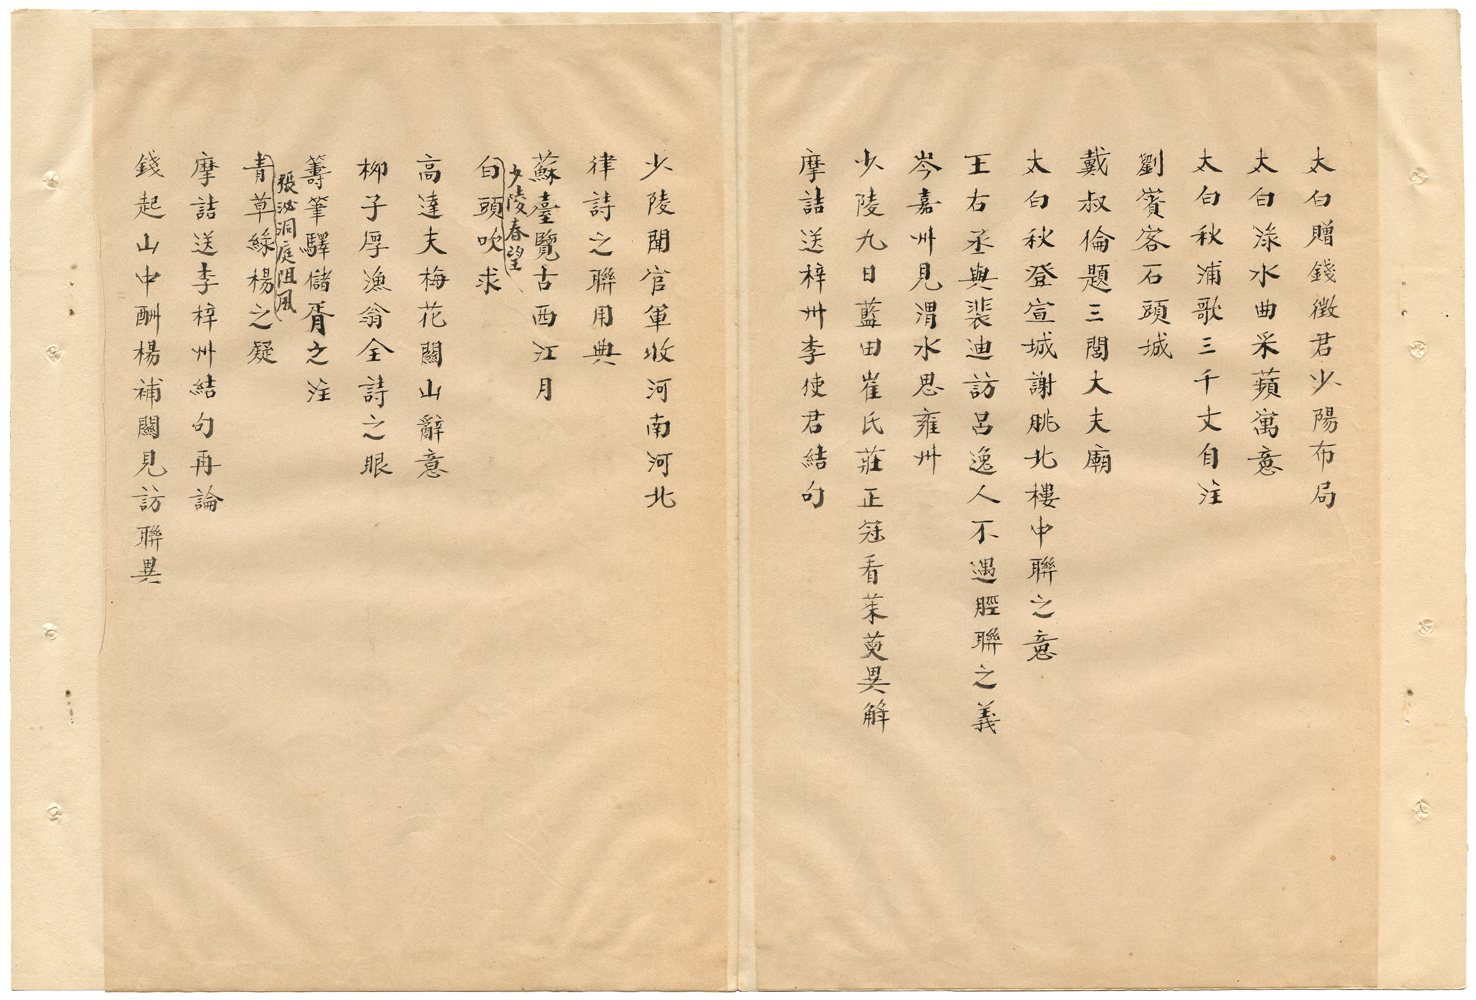 太白贈錢徵君少陽布局
太白淥水曲采蘋寓意
太白秋浦歌三千丈自注
劉賓客石頭城
戴叔倫題三閭大夫廟
太白秋登宣城謝朓北樓中聯之意
王右丞與裴迪訪呂逸人不遇脛聯之義
岑嘉州見渭水思雍州
少陵九日藍田崔氏莊正冠看茱萸異解
摩詰送梓州李使君結句
少陵聞官軍收河南河北
律詩之聯用典
蘇臺覽古西江月
少陵春望
白頭吹求
高達夫梅花關山辭意
柳子厚漁翁全詩之眼
籌筆驛儲胥之注
張泌洞庭阻風
青草綠楊之疑
摩詰送李梓州結句再論
錢起山中酬楊補闕見訪聯異